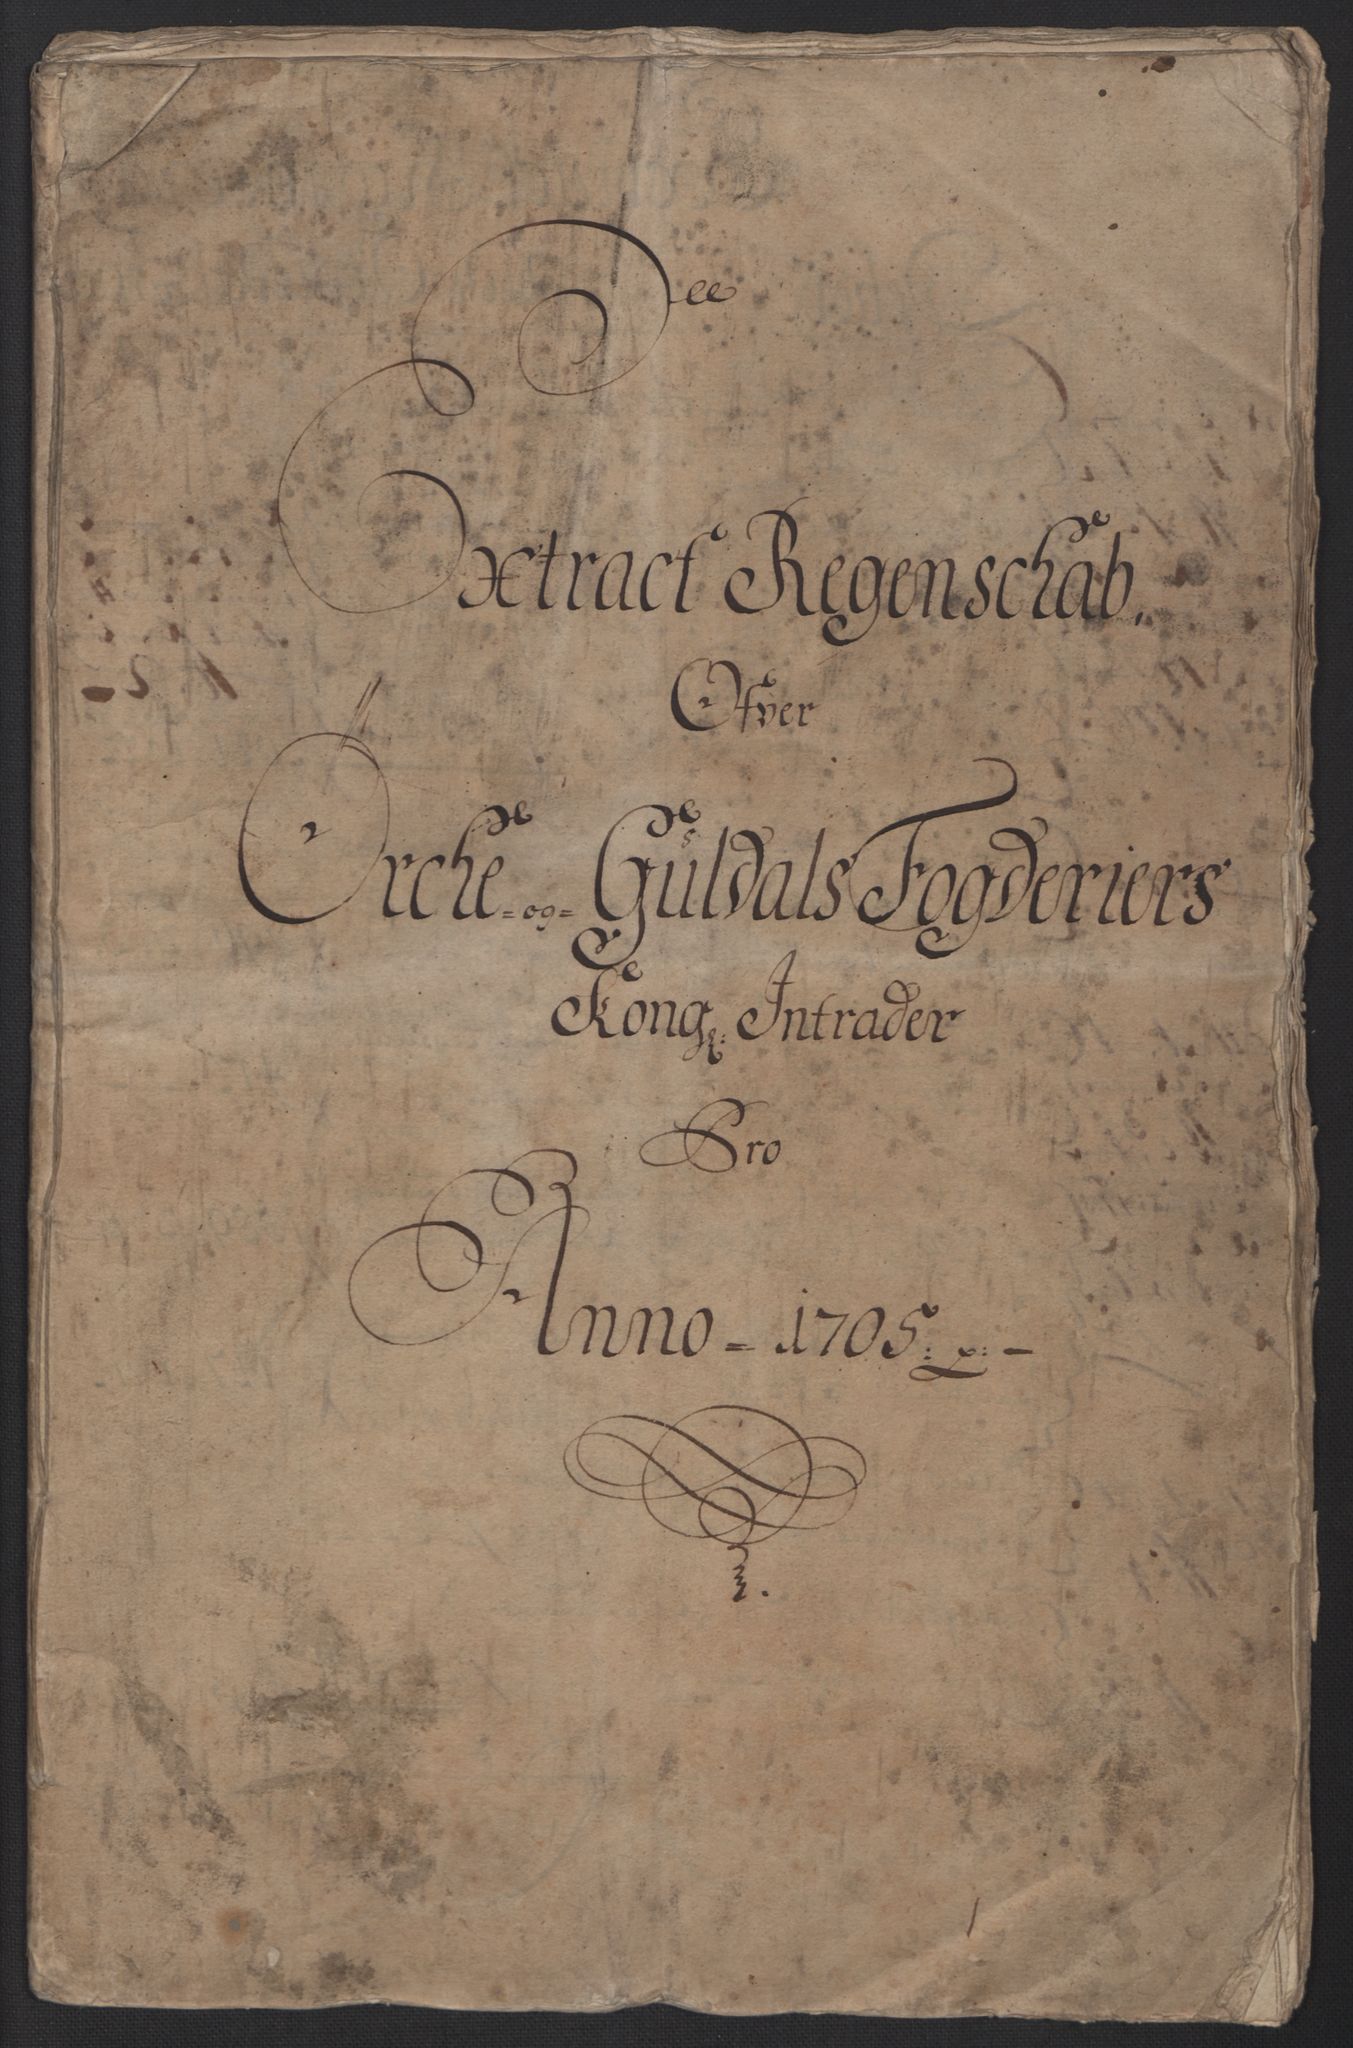 Extract Regenschab.
Ofver
Orche=og=Guldals Fogderiers
Kongl: Intrader
Pro
Anno=1705: